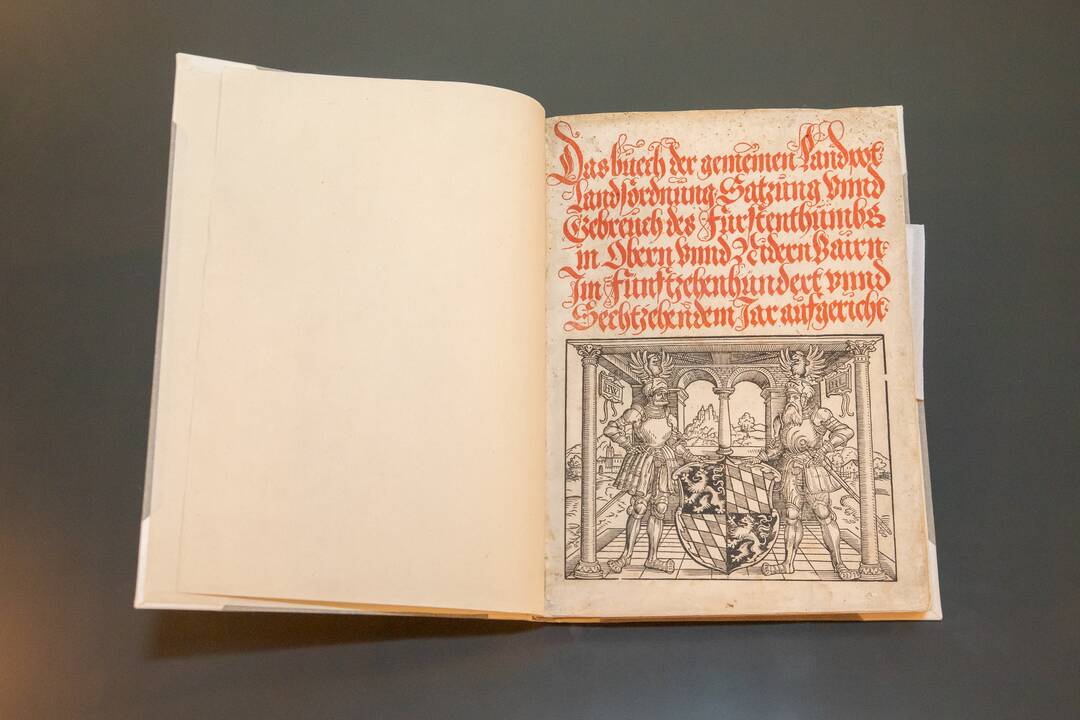 Das buech der gemeinen Landpot.
Landsordnung. Satzung vnnd
Gebreuch des Fürstenthumbs
in Obern vnnd Nidern Bairn.
Im Fünftzehenhundert vnnd
Sechtzehendem Jar aufgericht.